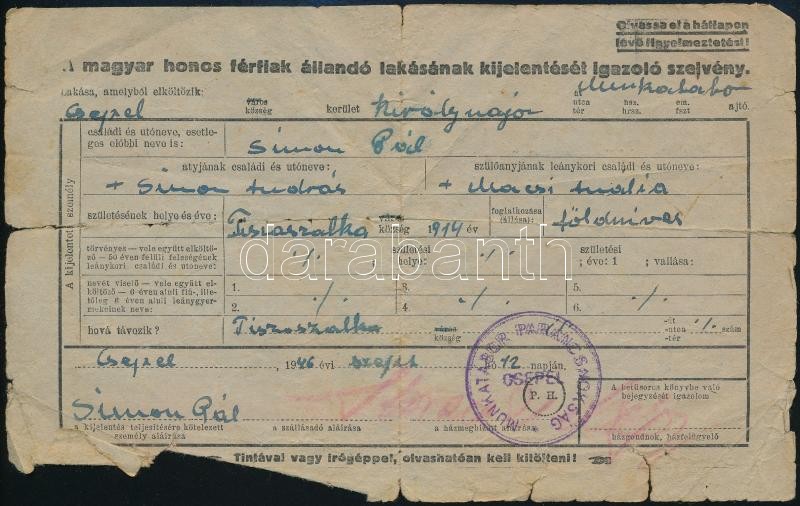 Olvassa el a hátlapon
lévő figyelmeztetést!
A magyar honos férfiak állandó lakásának kijelentését igazoló szelvény.
Lakása, amelyből elköltözik:
Csepel város község kerület Királymajor út utca tér Munkatábor hsz. hrsz. em. fszt ajtó.
A kijelentett személy
családi és utóneve, esetleges előbbi neve is: Simon Pál
atyjának családi és utóneve: szülőanyjának leánykori családi és utóneve:
+ Simon András + Mácsi Amália
születésének helye és éve: Tiszaszalka város község 1914 év foglalkozása (állása): földmíves
törvényes — vele együtt elköltöző — 50 éven felüli feleségének leánykori családi és utóneve: ·/. születési helye: ·/. születési éve: 1 ; vallása:
nevét viselő — vele együtt elköltöző — 6 éven aluli fiú-, illetőleg 6 éven aluli leánygyermekeinek neve:
1. 3. 5.
2. ·/. 4. ·/. 6. ·/.
hová távozik? Tiszaszalka város község út utca tér ·/. szám
Csepel, 1946 évi szept hó 12 napján.
MUNKATÁBOR PARANCSNOKSÁG
CSEPEL
P. H.
Simon Pál
a kijelentés teljesítésére kötelezett személy aláírása
a szállásadó aláírása
a házmegbízott aláírása
A betűsoros könyvbe való bejegyzését igazolom
házgondnok, házfelügyelő
Tintával vagy írógéppel, olvashatóan kell kitölteni!
darabanth